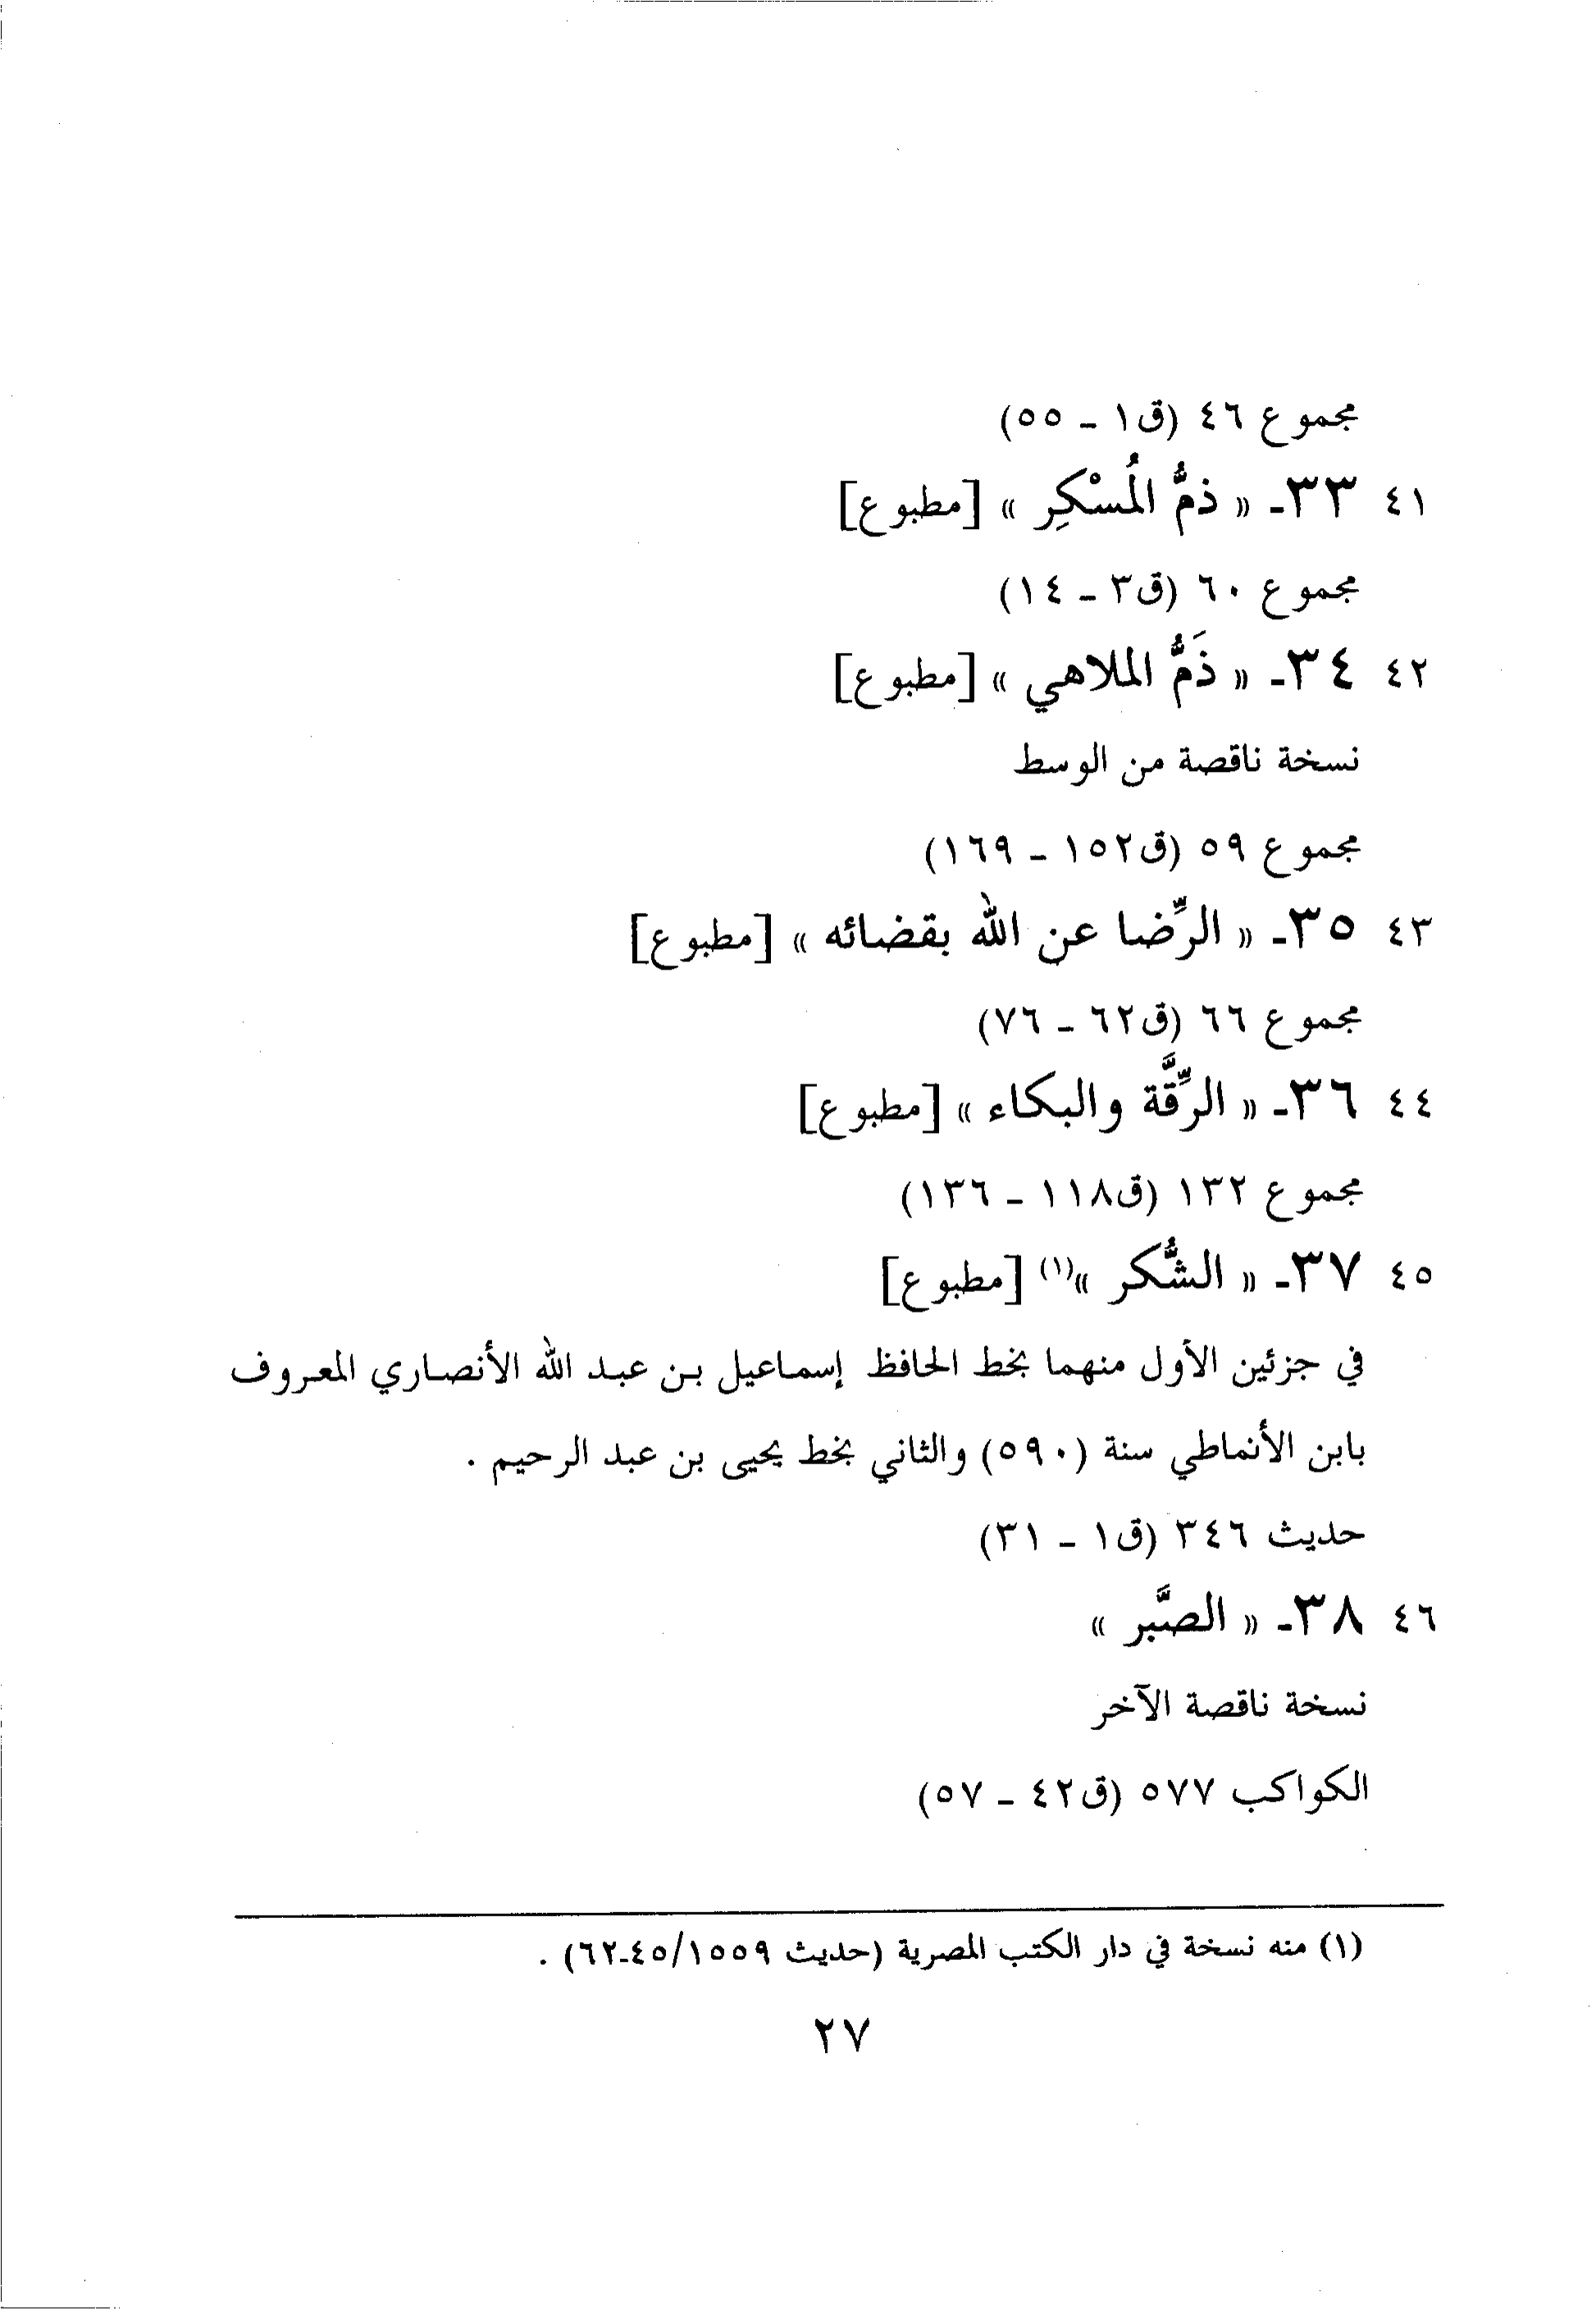 مجموع ٤٦ (ق١ - ٥٥)
٤١ ٣٣- « ذمُّ المُسْكِر » [مطبوع]
مجموع ٦٠ (ق٣ - ١٤)
٤٢ ٣٤- « ذَمُّ الملاهي » [مطبوع]
نسخة ناقصة من الوسط
مجموع ٥٩ (ق١٥٢ - ١٦٩)
٤٣ ٣٥- « الرِّضا عن الله بقضائه » [مطبوع]
مجموع ٦٦ (ق٦٢ - ٧٦)
٤٤ ٣٦- « الرِّقَّة والبكاء » [مطبوع]
مجموع ١٣٢ (ق١١٨ - ١٣٦)
٤٥ ٣٧- « الشُّكر »(١) [مطبوع]
في جزئين الأول منهما بخط الحافظ إسماعيل بن عبد الله الأنصاري المعروف
بابن الأنماطي سنة (٥٩٠) والثاني بخط يحيى بن عبد الرحيم .
حديث ٣٤٦ (ق١ - ٣١)
٤٦ ٣٨- « الصَّبر »
نسخة ناقصة الآخر
الكواكب ٥٧٧ (ق٤٢ - ٥٧)
(١) منه نسخة في دار الكتب المصرية (حديث ١٥٥٩/٤٥-٦٢) .
٢٧